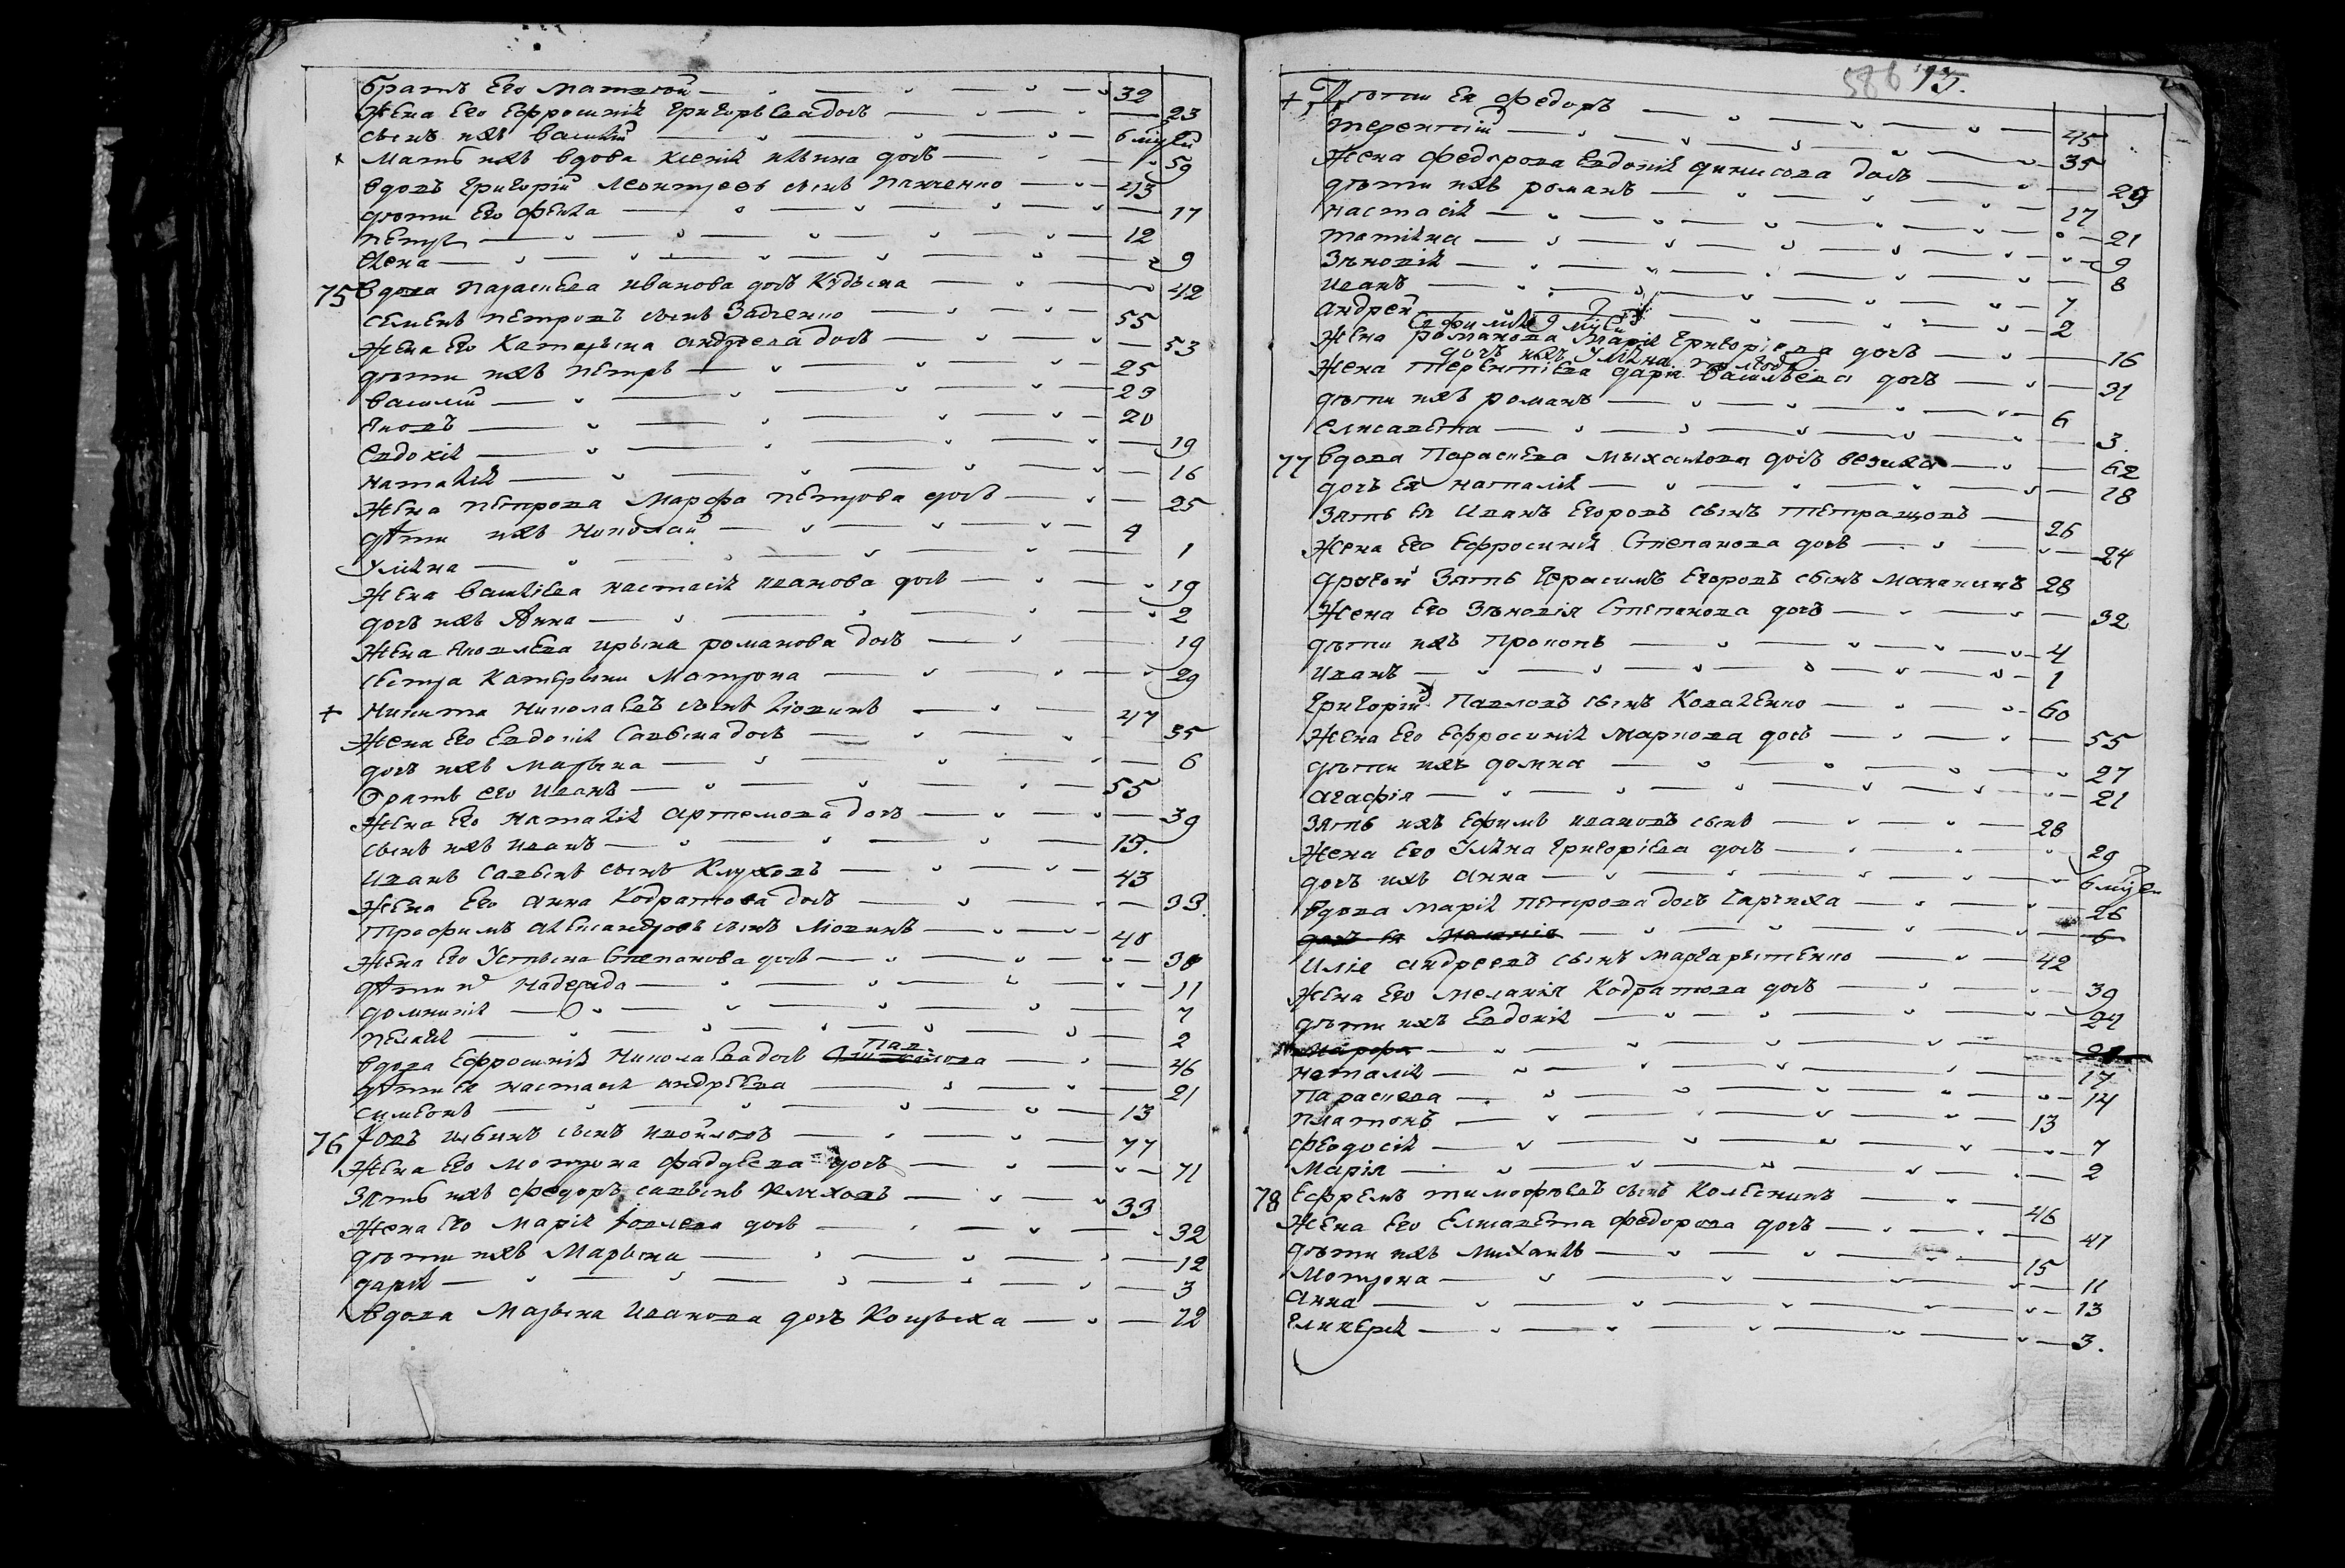 братъ Его матвѣй 32
Жена Его Ефросинія Григорьева дочь 23
сынъ ихъ василій 6 мцей
× мать ихъ вдова ксенія ильина дочь 59
вдовъ Григорій Леонтьевъ сынъ Панченко 43
дѣти Его фекла 17
Петръ 12
Елена 9
75 вдова параскева иванова дочь 42
семенъ петровъ сынъ 55
Жена Его Катерына андреева дочь 53
дѣти ихъ Петръ 25
василій 23
Яковъ 20
Евдокія 19
наталія 16
Жена Петрова Марфа Петрова дочь 25
дѣти ихъ Николай 4
Уліяна 1
Жена василіева настасія иванова дочь 19
дочь ихъ Анна 2
Жена яковлева ирына романова дочь 19
сестра Катерыны Мотрона 29
+ Никита Николаевъ сынъ 47
Жена Его Евдокія Савына дочь 35
дочь ихъ марына 6
братъ его иванъ 55
Жена Его наталія артемова дочь 39
сынъ ихъ иванъ 13.
иванъ савынъ сынъ 43
Жена Его анна Кодратова дочь 33.
Трофимъ александровъ сынъ 40
Жена Его Устына Степанова дочь 38
дѣти их Надежда 11
домникія 7
Пелагія 2
вдова Ефросинія Николаева дочь Пав 46
дѣти ея настасія андреева 21
симеонъ 13
76 Іовъ сынъ 77
Жена Его мотрона фадѣева дочь 71
Зять ихъ федоръ савынъ 33
Жена Его марія Іовлева дочь 32
дѣти ихъ Марына 12
дарія 3
вдова Марына Иванова дочь 72
586 13.
+ дѣти Ея федоръ 45
терентій 35
Жена федорова Евдокія динисова дочь 29
дѣти ихъ романъ 17
настасія 21
татіяна 9
Зѣновія 8
иванъ 7
андрей 2
9 мцей
Жена романова Марія Григоріева дочь 16
дочь ихъ Уліяна
Жена терентіева дарія васильева дочь 31
дѣти ихъ романъ 6
елисавета 3.
77 вдова Параскева мыхайлова дочь 62
дочь Ея наталія 18
Зять Ея Иванъ Егоровъ сынъ 26
Жена Его Ефросинія Степанова дочь 24
другой Зять Герасимъ Егоровъ сынъ 28
Жена Его Зѣновія Степанова дочь 32
дѣти ихъ Прокопъ 4
Иванъ 1
Григорій Павловъ сынъ Коваленко 60
Жена Его Ефросинія Маркова дочь 55
дѣти ихъ домна 27
агафія 21
Зять ихъ Ефимъ ивановъ сынъ 28
Жена Его Уліяна Григоріева дочь 29
дочь ихъ анна 6 мцей
вдова Марія Петрова дочь 26
дочь Ея Меланія 6
Илія андреевъ сынъ маргарытенко 42
Жена Его меланія Кодратова дочь 39
дѣти ихъ Евдокія 24
марфа
наталія 17
Параскева 14
платонъ 13
феодосія 7
Марія 2
78 Ефремъ тимофѣевъ сынъ Колесникъ 46
Жена Его Елисавета федорова дочь 41
дѣти ихъ михаилъ 15
мотрона 11
анна 13
гликерія 3.